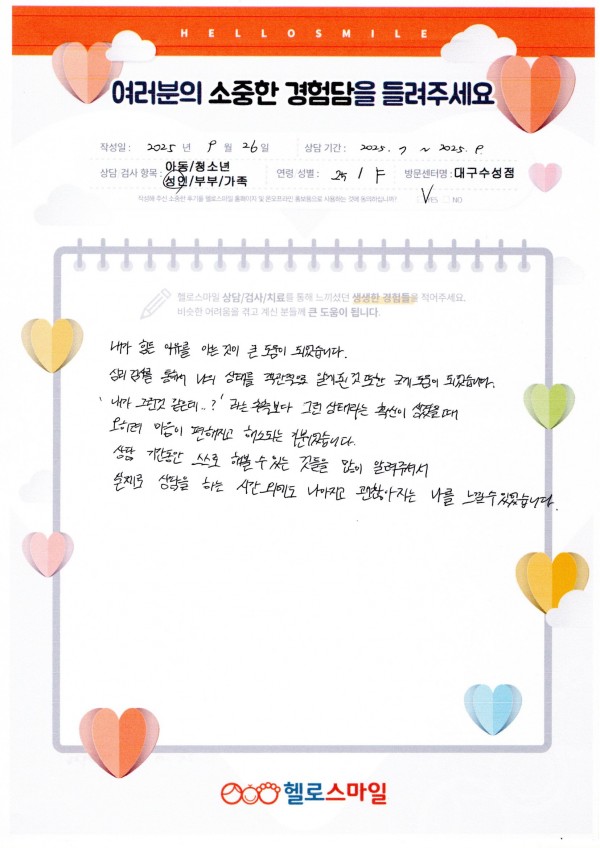 HELLOSMILE
여러분의 소중한 경험담을 들려주세요
작성일 : 2025 년 9 월 26 일 상담 기간 : 2025. 7 ~ 2025. 9
상담 검사 항목 : 아동/청소년
성인/부부/가족
연령 성별 : / F 방문센터명 : 대구수성점
작성해 주신 소중한 후기를 헬로스마일 홈페이지 및 온오프라인 홍보용으로 사용하는 것에 동의하십니까? V YES NO
헬로스마일 상담/검사/치료를 통해 느끼셨던 생생한 경험들을 적어주세요.
비슷한 어려움을 겪고 계신 분들께 큰 도움이 됩니다.
내가 힘든 이유를 아는 것이 큰 도움이 되었습니다.
심리검사를 통해서 나의 상태를 객관적으로 알게된 것 또한 크게 도움이 되었습니다.
'내가 그런것 같은데..?' 라는 추측보다 그런 상태라는 확신이 생겼을때
오히려 마음이 편해지고 해소되는 기분이었습니다.
상담 기간동안 스스로 해볼 수 있는 것들을 많이 알려주셔서
실제로 상담을 하는 시간 외에도 나아지고 괜찮아지는 나를 느낄 수 있었습니다.
헬로스마일